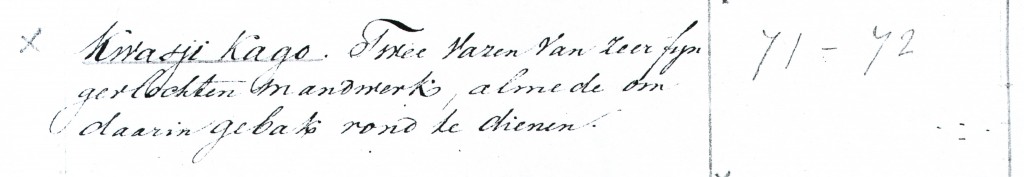 x Kwasji Kago. Twee Vazen Van zeer fyn 71 - 72
gevlochten mandwerk, almede om
daarin gebak rond te dienen.